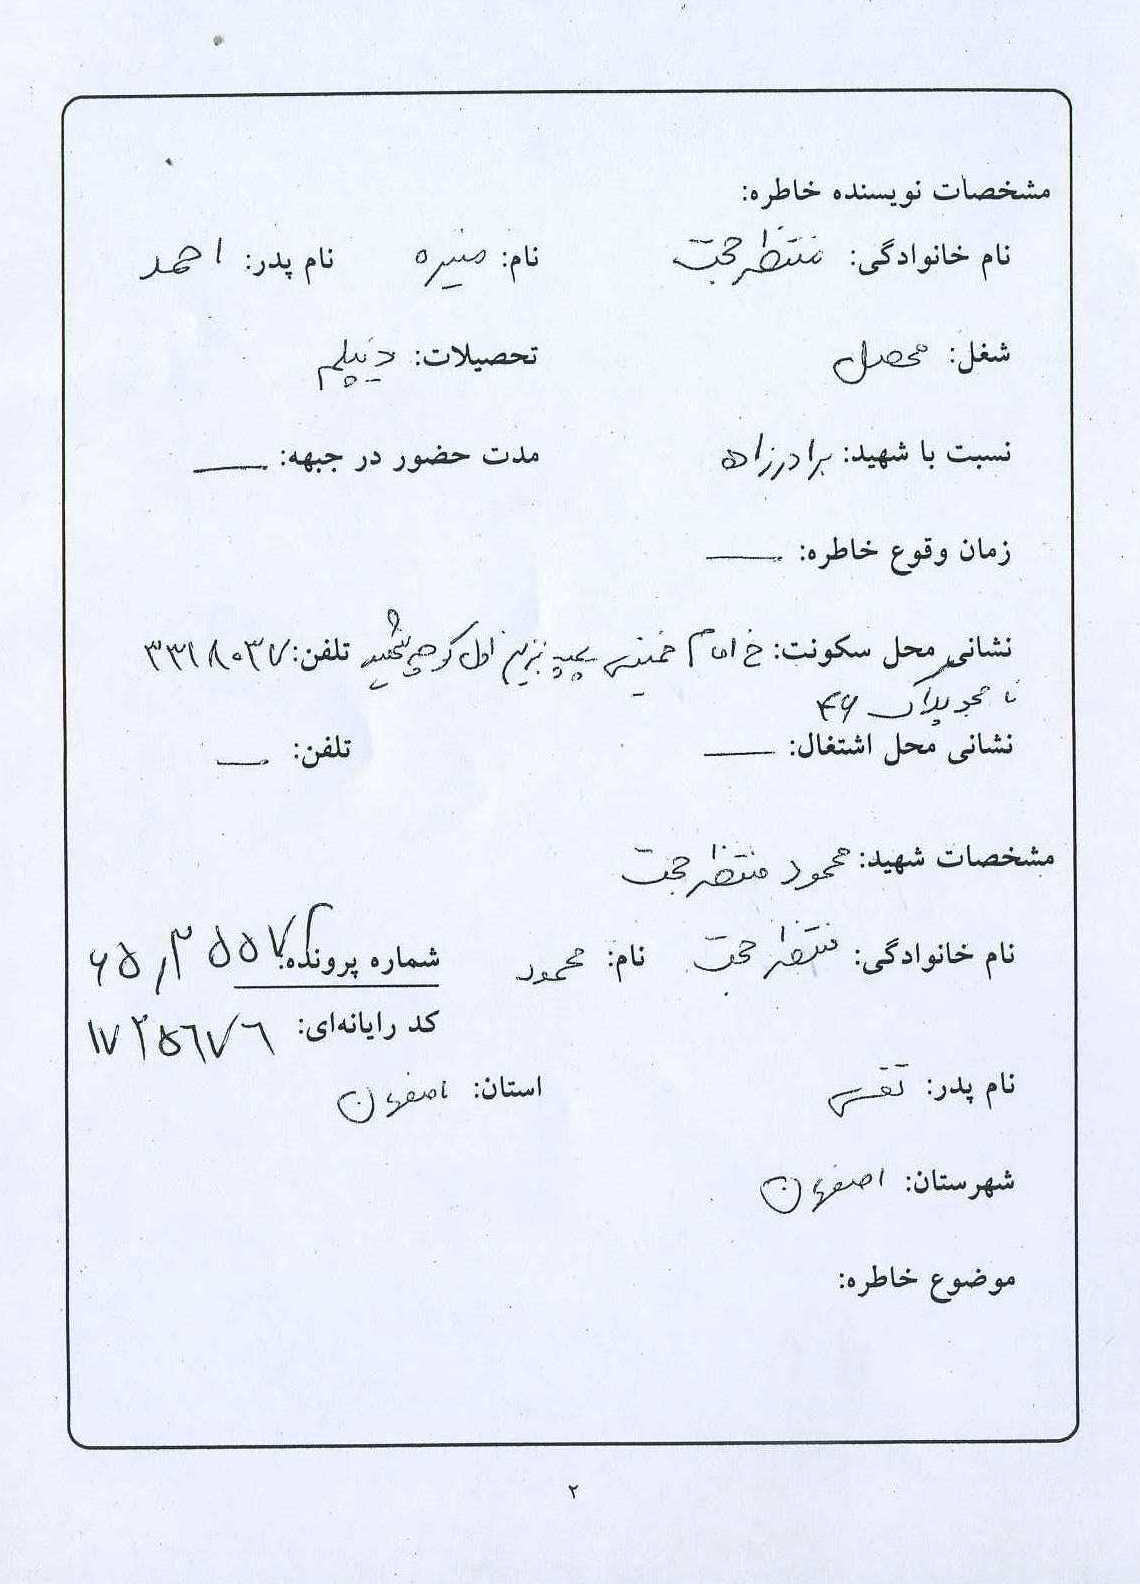 مشخصات نویسنده خاطره:
نام خانوادگی: منتظر حجت نام: منیره نام پدر: احمد
شغل: محصل تحصیلات: دیپلم
نسبت با شهید: برادرزاده مدت حضور در جبهه: ــــ
زمان وقوع خاطره: ــــ
نشانی محل سکونت: خ امام خمینی پمپ بنزین اول کوچه شهید تلفن: ۳۳۱۸۰۳۷
پلاک ۴۶
نشانی محل اشتغال: ــــ تلفن: ــــ
مشخصات شهید: محمود منتظر حجت
نام خانوادگی: منتظر حجت نام: محمود شماره پرونده:
کد رایانه‌ای: ۱۷۲۵۶۷۶
نام پدر: تقی استان: اصفهان
شهرستان: اصفهان
موضوع خاطره:
۲